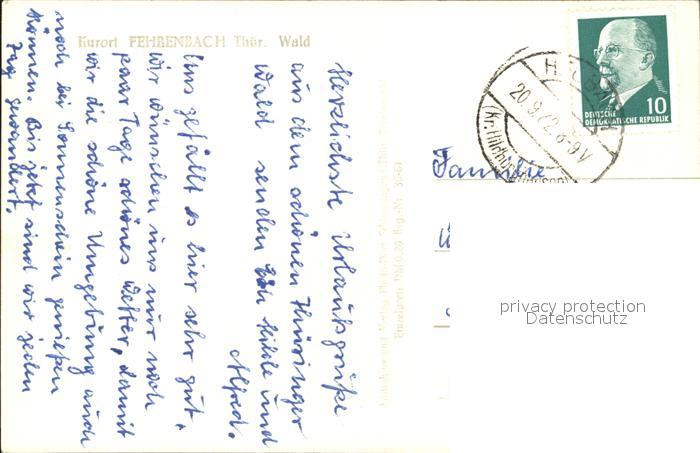 Kurort FEHRENBACH Thür. Wald
Herzlichste Urlaubsgrüße
aus dem schönen Thüringer
Wald senden Euch Hilde und
Alfred.
Uns gefällt es hier sehr gut,
wir wünschen uns nur noch
paar Tage schönes Wetter, damit
wir die schöne Umgebung auch
noch bei Sonnenschein genießen
können. Bis jetzt sind wir jeden
Tag gewandert.
Einzelpreis DM 0,20 Reg.-Nr.
Familie
20.9.72
DEUTSCHE
DEMOKRATISCHE REPUBLIK
10
privacy protection
Datenschutz